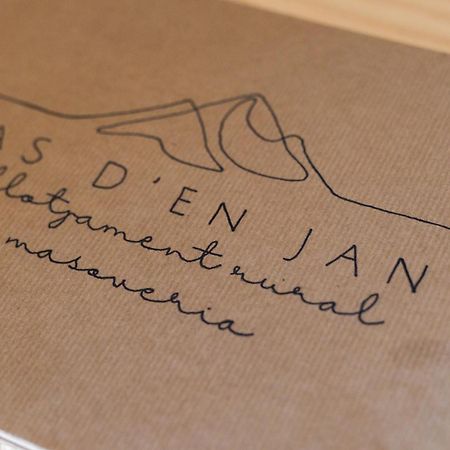 AS D'EN JAN
llotjament rural
masoveria